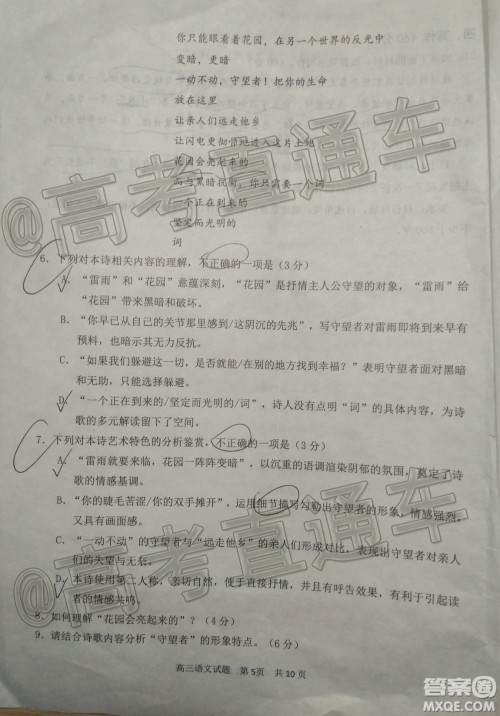 你只能眼看着花园，在另一个世界的反光中
变暗，更暗
一动不动，守望者！把你的生命
放在这里
让亲人们远走他乡
让闪电更彻彻底地进入这片土地
花园会亮起来的
而与黑暗抗衡，你只需要一个词
一个正在到来的
坚定而光明的
词
6．下列对本诗相关内容的理解，不正确的一项是（3 分）
A．“雷雨”和“花园”意蕴深刻，“花园”是抒情主人公守望的对象，“雷雨”给
“花园”带来黑暗和破坏。
B．“你早已从自己的关节那里感到/这阴沉的先兆”，写守望者对雷雨即将到来早有
预料，也暗示其无力反抗。
C．“如果我们躲避这一切，是否就能/在别的地方找到幸福？”表明守望者面对黑暗
和无助，只能选择躲避。
D．“一个正在到来的/坚定而光明的/词”，诗人没有点明“词”的具体内容，为诗
歌的多元解读留下了空间。
7．下列对本诗艺术特色的分析鉴赏，不正确的一项是（3 分）
A．“雷雨就要来临，花园一阵阵变暗”，以沉重的语调渲染阴郁的氛围，奠定了诗
歌的情感基调。
B．“你的睫毛苦涩/你的双手摊开”，运用细节描写勾勒出守望者的形象，情感强烈
又具有画面感。
C．“一动不动”的守望者与“远走他乡”的亲人们形成对比，表现出守望者对亲人
们的失望与无奈。
D．本诗使用第二人称，亲切自然，便于直接抒情，并且有呼告效果，有利于引起读
者的情感共鸣。
8．如何理解“花园会亮起来的”？（4 分）
9．请结合诗歌内容分析“守望者”的形象特点。（6 分）
高三语文试题 第 5页 共 10 页
@高考直通车
@高考直通车
答案圈
MXQE.COM